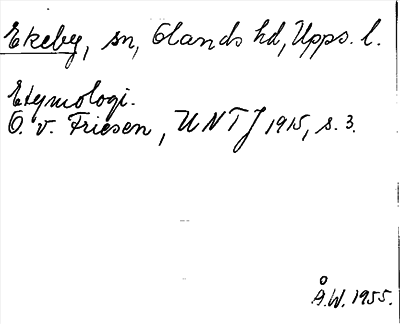 Ekeby, sn, Olands hd, Upps. l.
Etymologi.
O. v. Friesen, UNTJ 1915, s. 3.
Å.W. 1955.